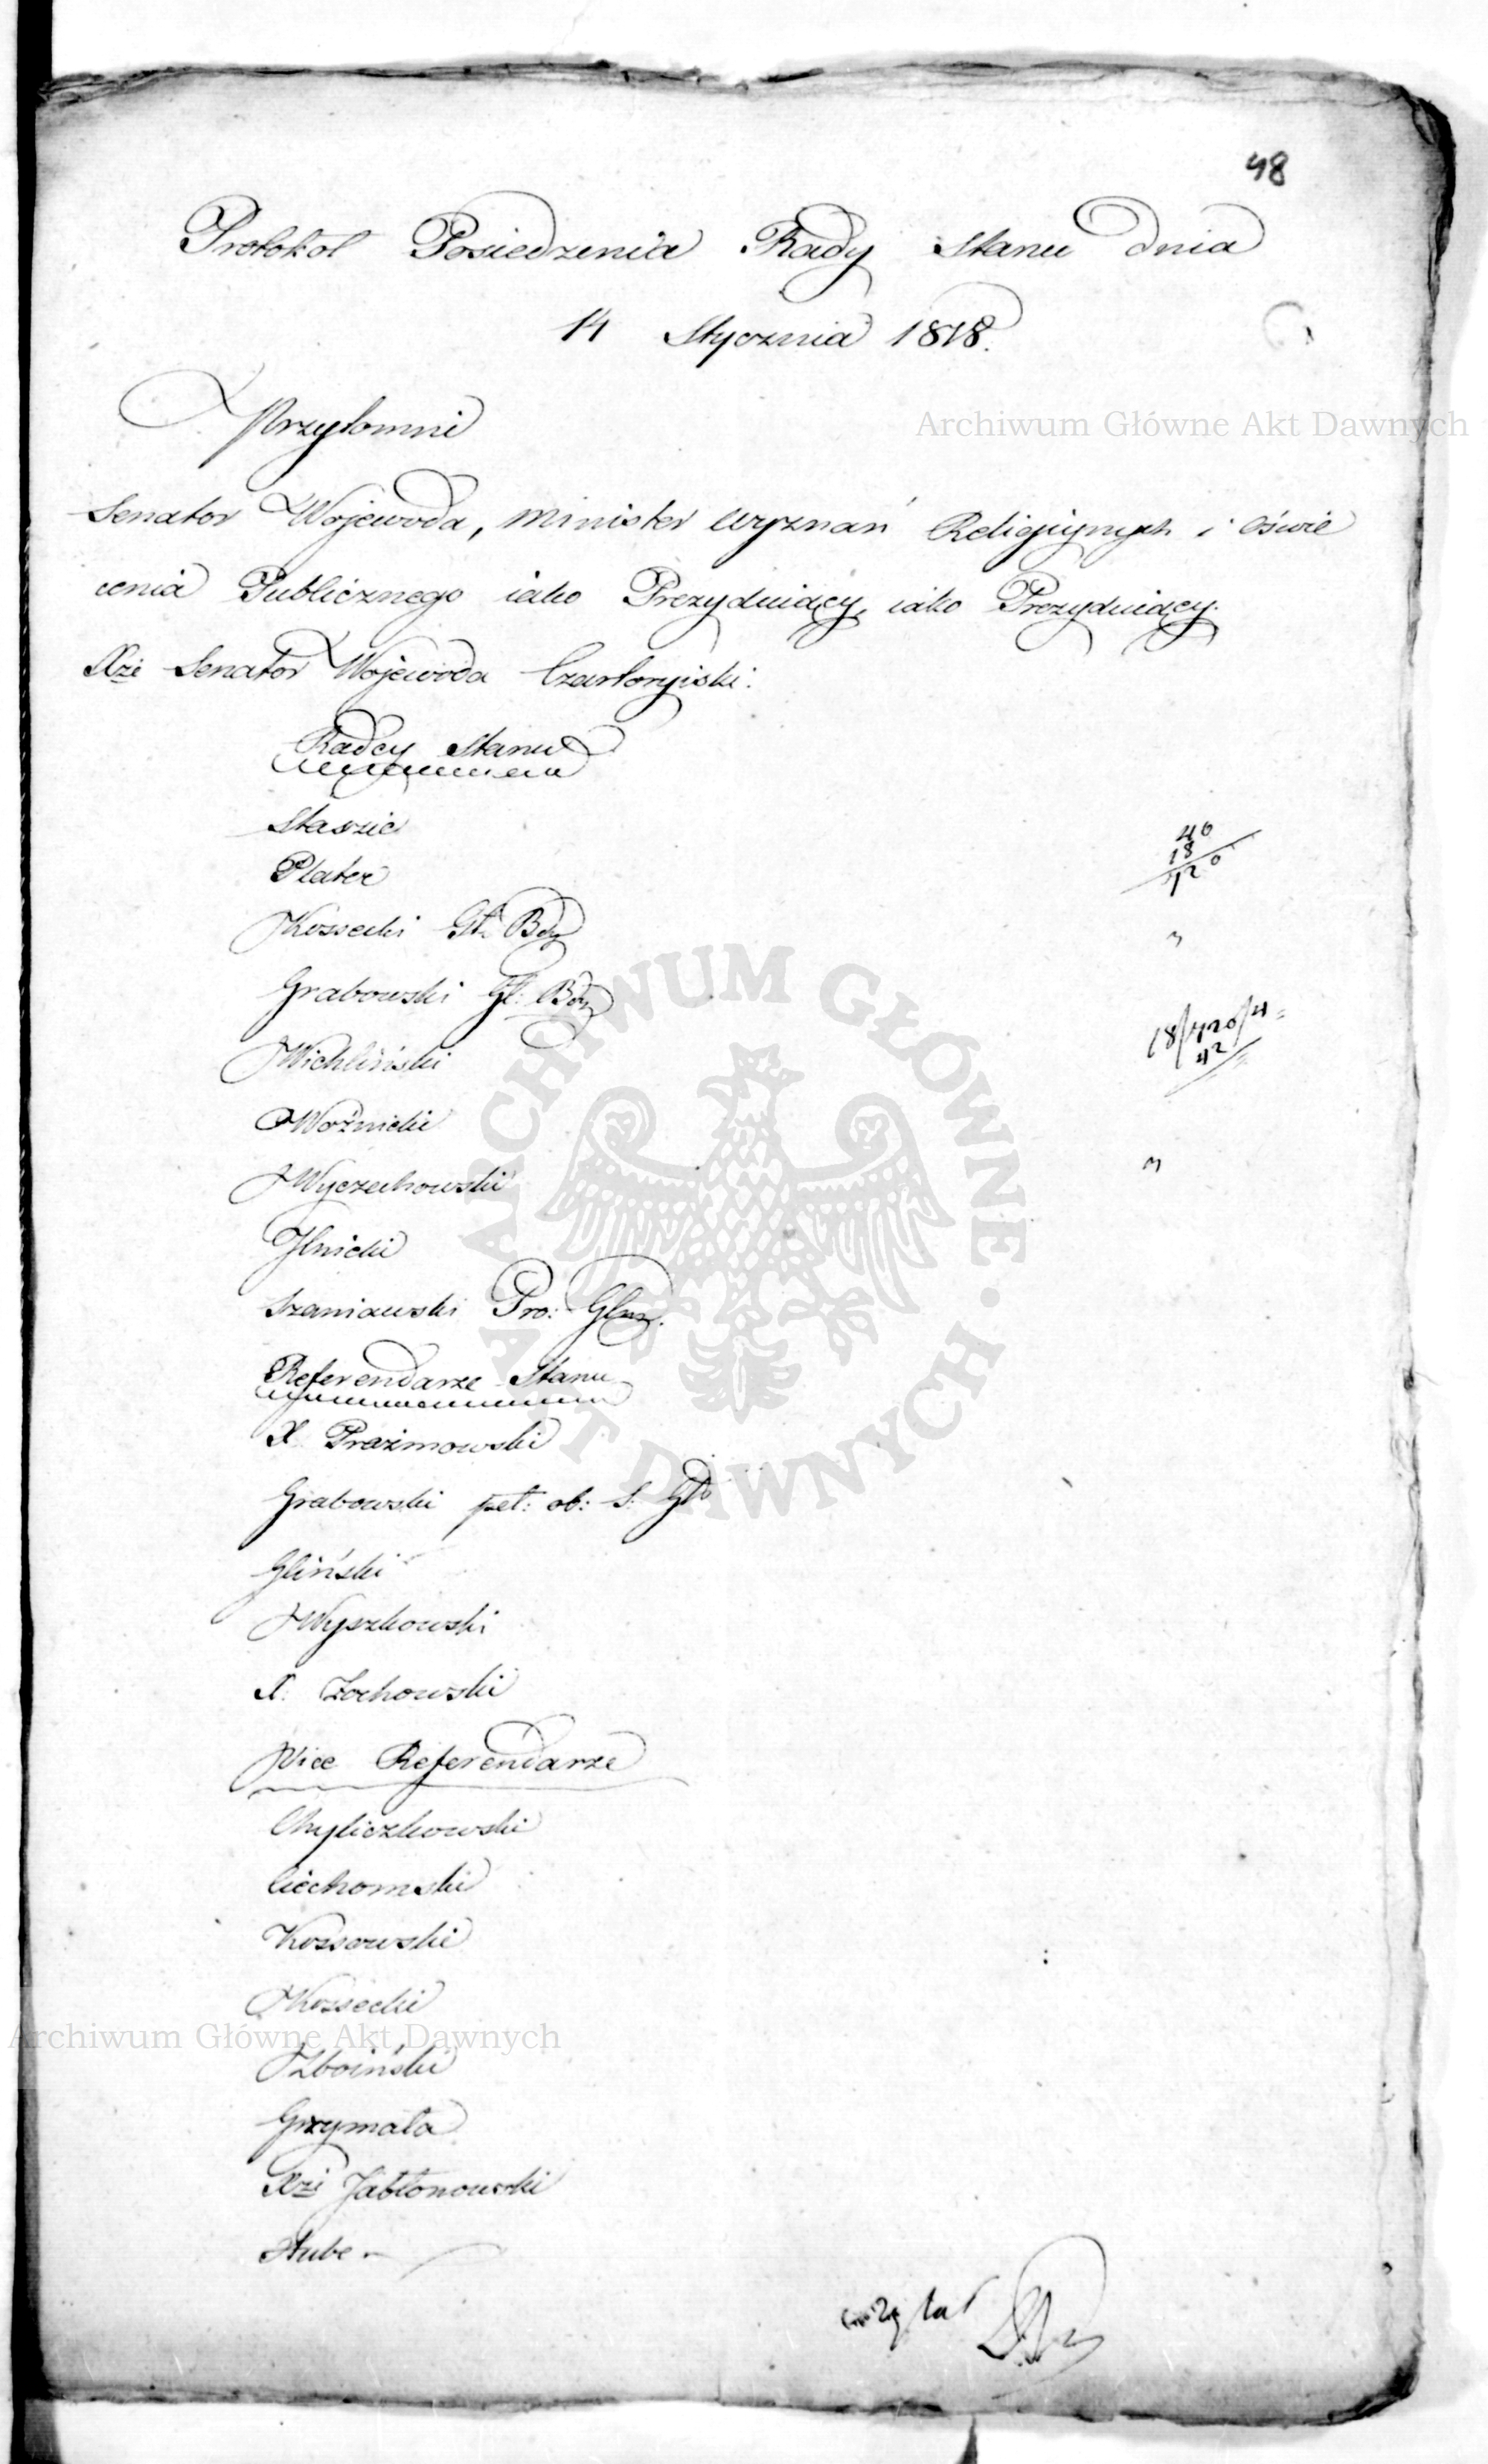 48
Protokol Posiedzenia Rady Stanu dnia
14 Stycznia 1818.
Przytomni
Archiwum Główne Akt Dawnych
Senator Wojewoda, Minister wyznań Religijnych i Oświe
cenia Publicznego iako Prezyduiący, iako Prezyduiący.
Xże Senator Wojewoda Czartoryiski.
Radcy Stanu
Staszic
Plater
Kossecki Gł. Bdy
Grabowski Gł: Bdy
Michliński
Woźnicki
Wyczechowski
Ilnicki
Szaniawski Pro: Glny.
Referendarze Stanu
X. Prażmowski
Grabowski peł: ob: S. Gło
Gliński
Wyszkowski
X. Żochowski
Vice Referendarze
Chyliczkowski
Ciechomski
Kossowski
Kossecki
Zboiński
Grzymała
Xże Jabłonowski
Hube
40
18
720
18/720/4
42
czytał
ARCHIWUM GŁÓWNE · AKT DAWNYCH ·
Archiwum Główne Akt Dawnych